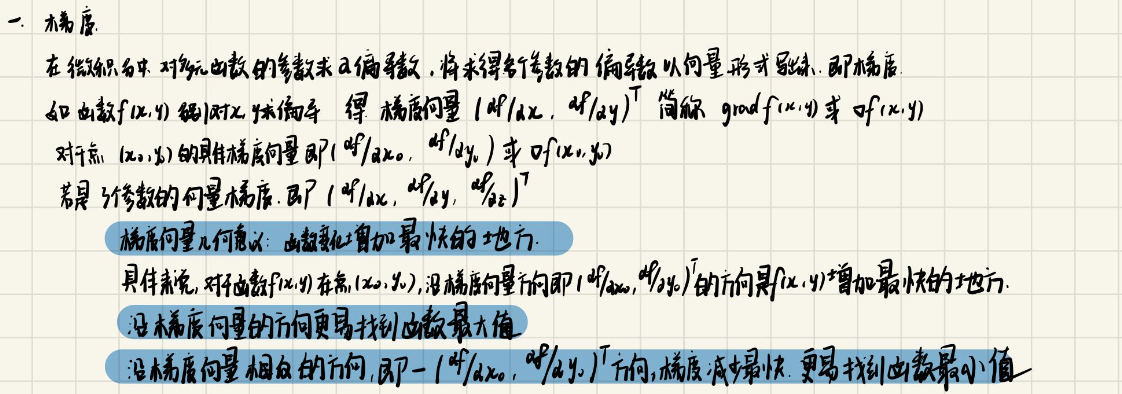 一. 梯度.
在微积分中 对多元函数的参数求∂偏导数,将求得各个参数的偏导数以向量形式写出来.即梯度.
如函数f(x,y) 分别对x,y求偏导 得 梯度向量 (∂f/∂x, ∂f/∂y)ᵀ 简称 grad f(x,y)或 ▽f(x,y)
对于点 (x₀,y₀)的具体梯度向量即(∂f/∂x₀, ∂f/∂y₀)或▽f(x₀,y₀)
若是3个参数的向量梯度.即 (∂f/∂x, ∂f/∂y, ∂f/∂z)ᵀ
梯度向量几何意义: 函数变化增加最快的地方.
具体来说,对于函数f(x,y)在点(x₀,y₀),沿梯度向量方向即(∂f/∂x₀,∂f/∂y₀)ᵀ的方向是f(x,y)增加最快的地方.
沿梯度向量的方向更易找到函数最大值
沿梯度向量相反的方向,即-(∂f/∂x₀, ∂f/∂y₀)ᵀ方向,梯度减少最快.更易找到函数最小值